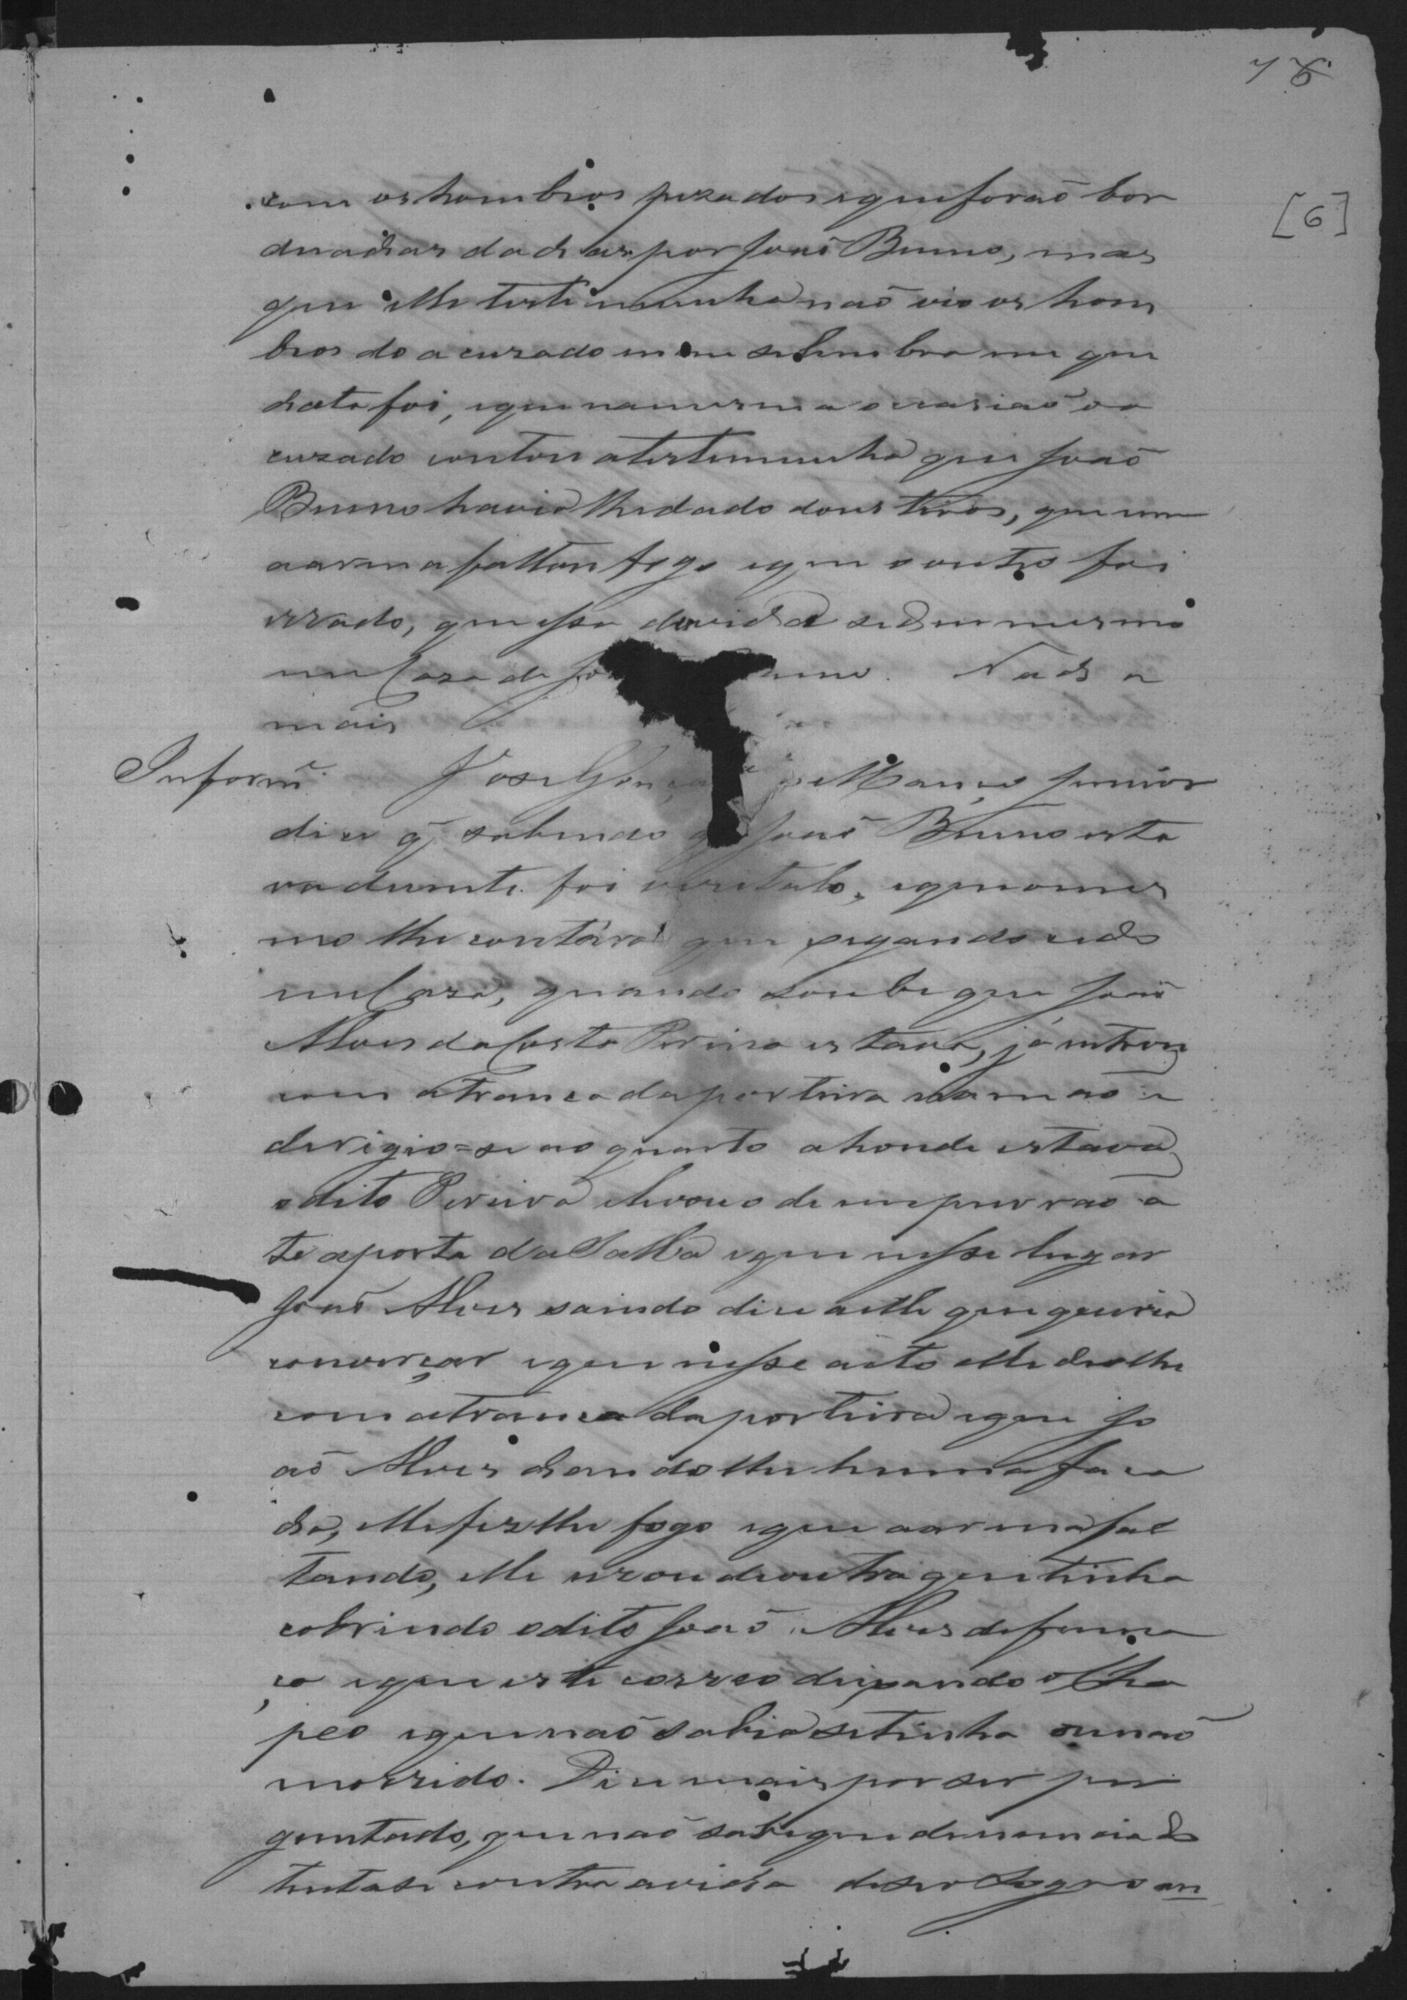 7 6
[6]
com os hombros pizados e que forão bor
duadas dadas por João Bruno, mas
que elle testimunha não vio os hom
bros do acuzado nem se lembra em que
data foi, e que na mesma occasião o a
cuzado contou a testemunha que João
Bruno havia lhe dado dous tiros, que um
a arma faltou fogo e que o outro foi
errado, que essa duvida se deu mesmo
em Casa de Jo Bruno. Nada
mais
Informe. José Gonça de Manço Junior
dice q̃ sabendo q̃ João Bruno esta
va duente foi vizitalo, e que o mes
mo lhe contára que xegando elle
em Casa, quando soube que João
Alves da Costa Pereira estava, já entrou
com a tranca da porteira na mão e
derigio=se ao quarto ahonde estava
o dito Pereira e levou o de impurrão a
té a porta da Salla e que nesse lugar
João Alves saindo dice a elle que queria
converçar e que nesse acto elle deo lhe
com a tranca da porteira e que Jo
ão Alves dando lhe huma faca
da, elle fez lhe fogo e que a arma fal
tando, elle uzou de outra que tinha
cobrindo o dito João Alves de fuma
ça e que este correo deixando o Cha
peo e que não sabia se tinha ou não
morrido. Dice mais por ser per
guntado, que não sabe que denunciado
tentase contra a vida de seo Sogro em